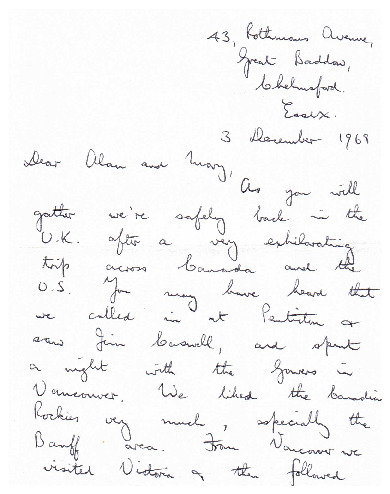 43, Rothmans Avenue,
Great Baddow,
Chelmsford.
Essex.
3 December 1968
Dear Alan and Mary,
As you will
gather we're safely back in the
U.K. after a very exhilarating
trip across Canada and the
U.S. You may have heard that
we called in at Penticton &
saw Jim Caswell, and spent
a night with the Gowers in
Vancouver. We liked the Canadian
Rockies very much, especially the
Banff area. From Vancouver we
visited Victoria & then followed